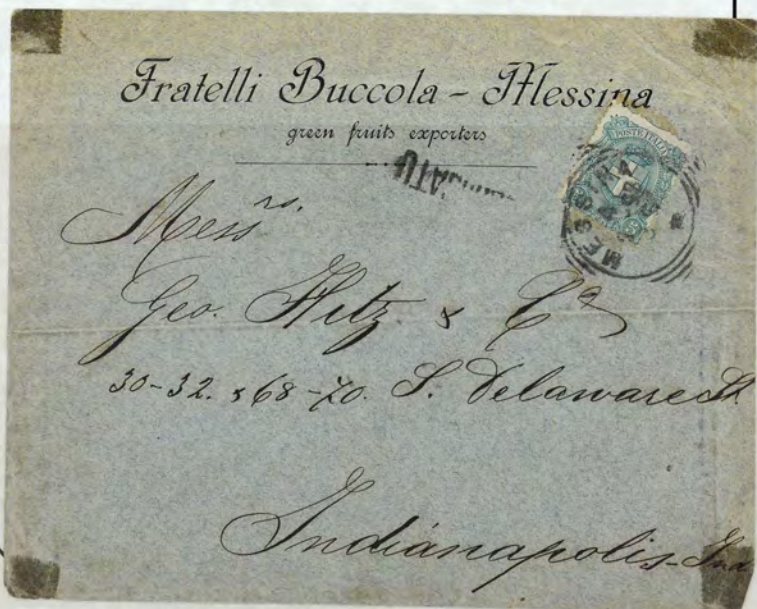 Fratelli Buccola - Messina
green fruits exporters
POSTE ITALIANE
MESSINA
Messrs.
Geo. Hitz & Co
30-32. & 68-70. S. Delaware St.
Indianapolis-Ind